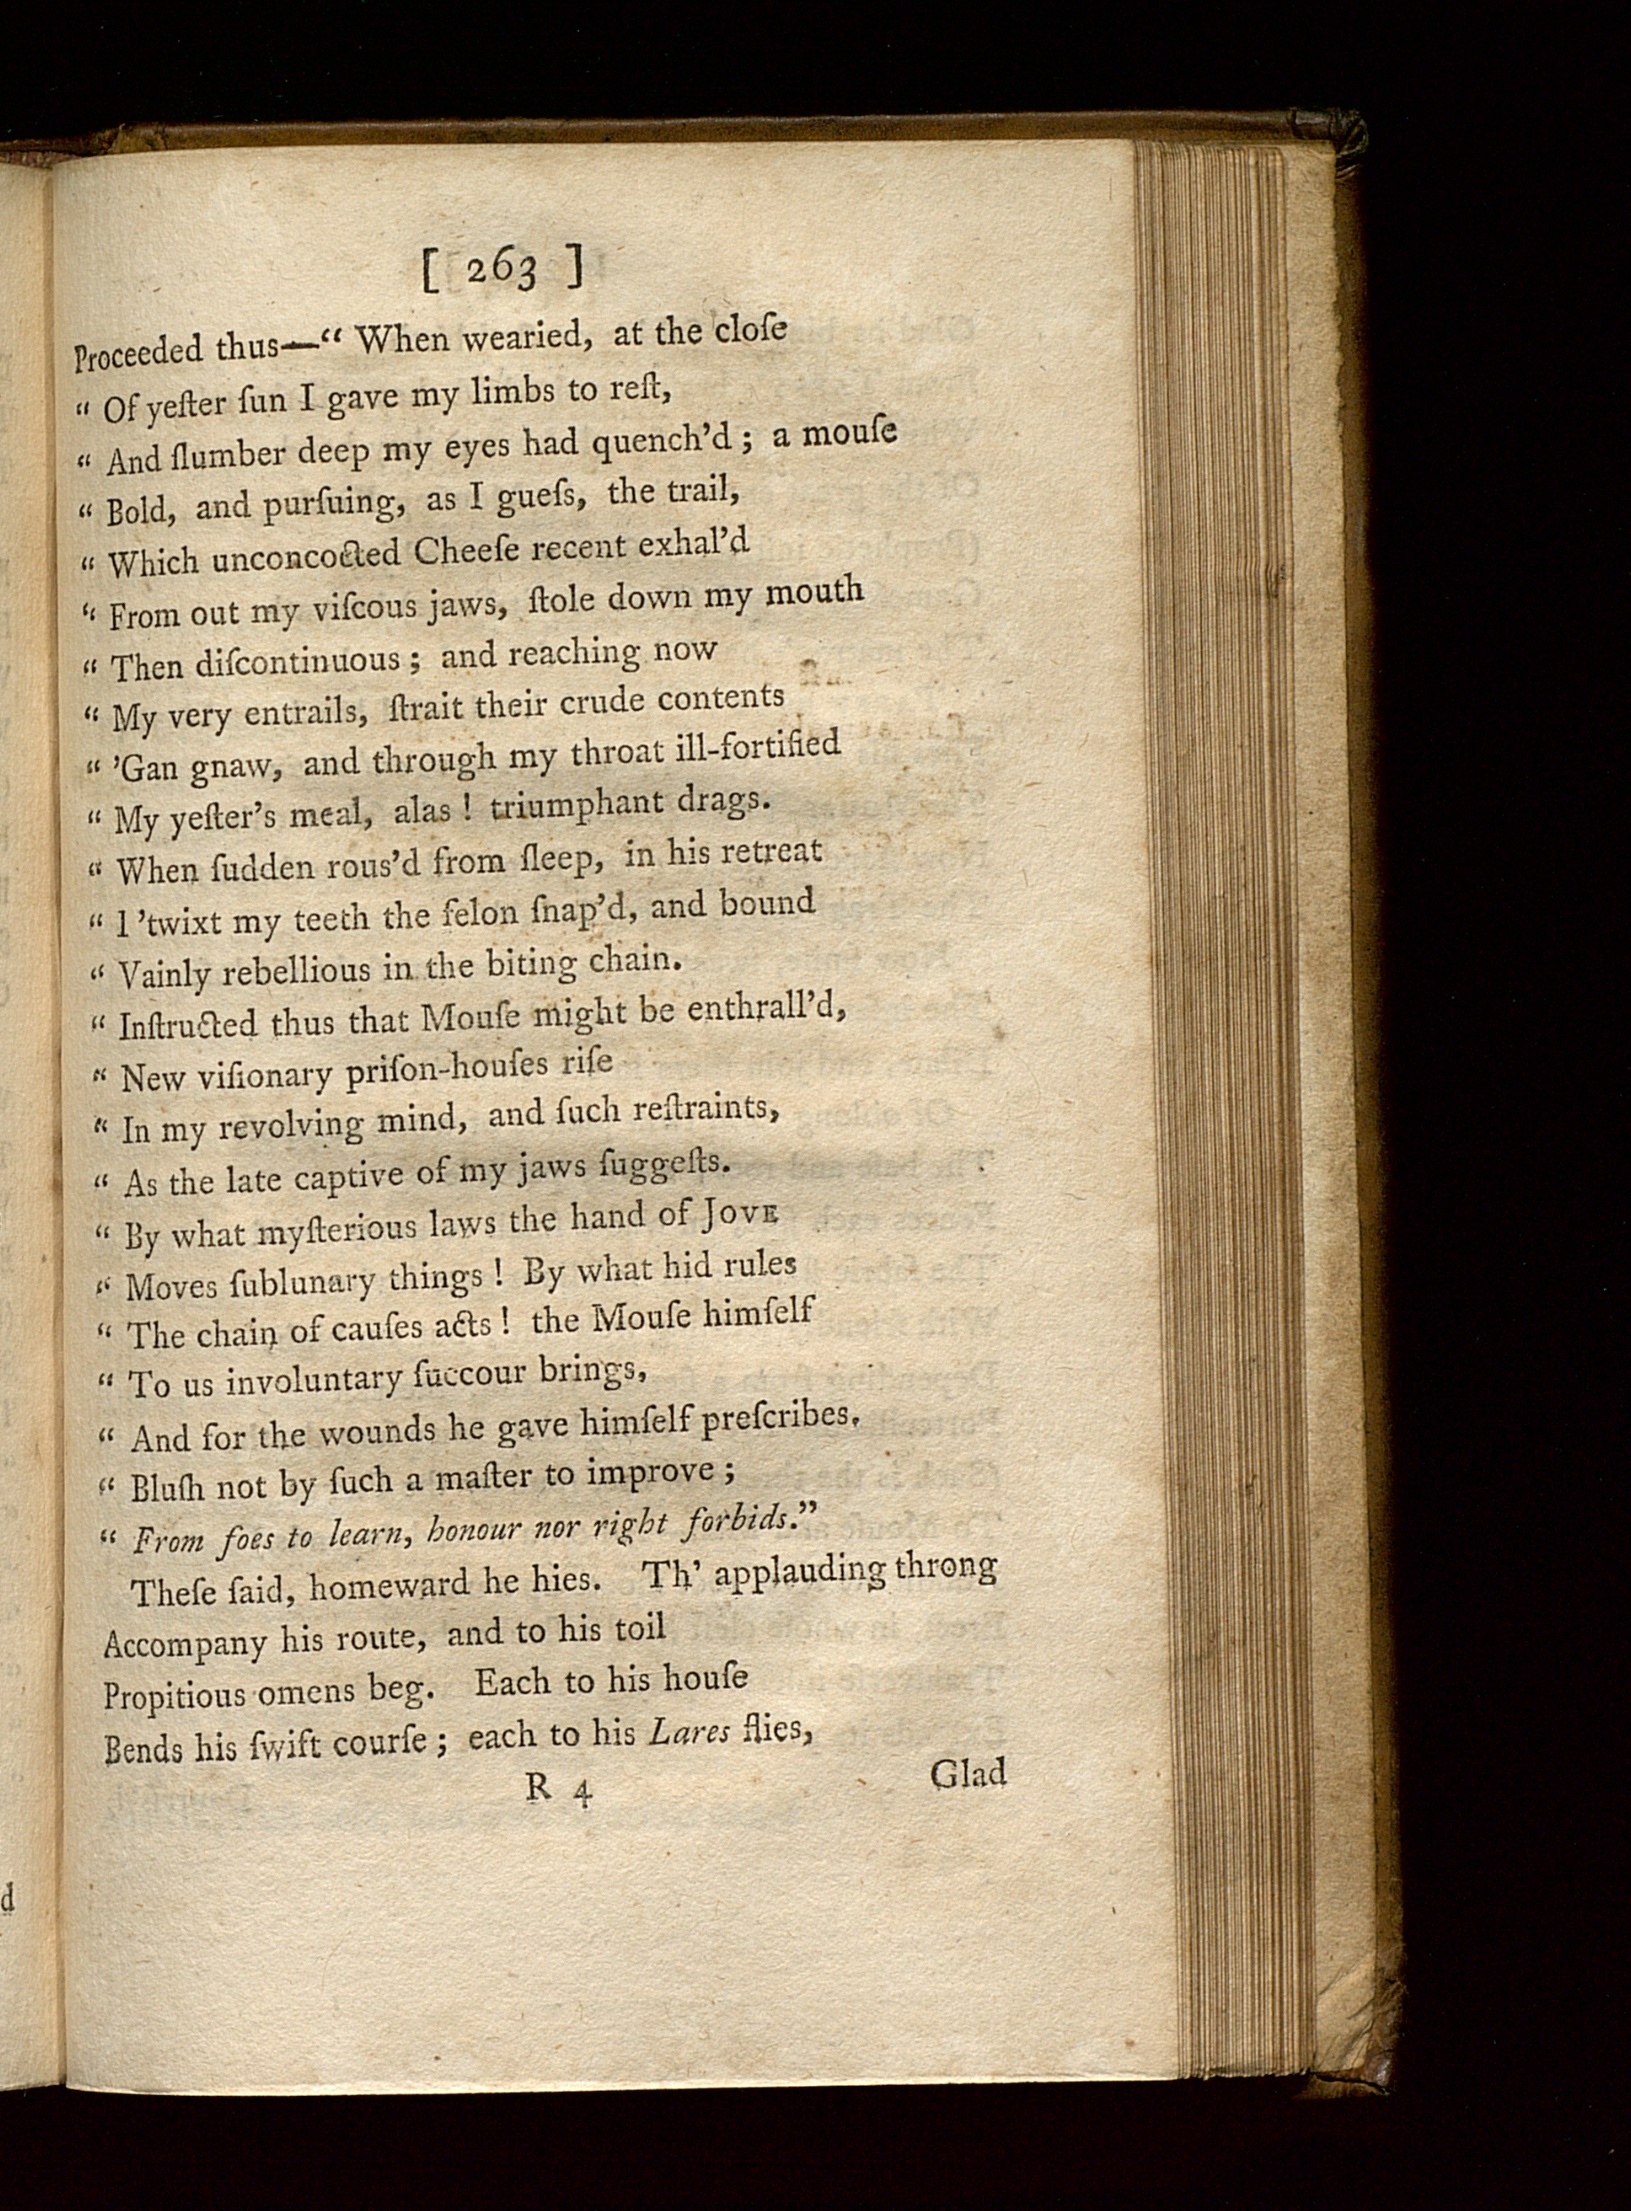 [ 263 ]
Proceeded thus—“ When wearied, at the cloſe
“ Of yeſter ſun I gave my limbs to reſt,
“ And ſlumber deep my eyes had quench’d ; a mouſe
“ Bold, and purſuing, as I gueſs, the trail,
“ Which unconcocted Cheeſe recent exhal’d
“ From out my viſcous jaws, ſtole down my mouth
“ Then diſcontinuous ; and reaching now
“ My very entrails, ſtrait their crude contents
“ ’Gan gnaw, and through my throat ill-fortified
“ My yeſter’s meal, alas ! triumphant drags.
“ When ſudden rous’d from ſleep, in his retreat
“ I ’twixt my teeth the felon ſnap’d, and bound
“ Vainly rebellious in the biting chain.
“ Inſtructed thus that Mouſe might be enthrall’d,
“ New viſionary priſon-houſes riſe
“ In my revolving mind, and ſuch reſtraints,
“ As the late captive of my jaws ſuggeſts.
“ By what myſterious laws the hand of JOVE
“ Moves ſublunary things ! By what hid rules
“ The chain of cauſes acts ! the Mouſe himſelf
“ To us involuntary ſuccour brings,
“ And for the wounds he gave himſelf preſcribes.
“ Bluſh not by ſuch a maſter to improve ;
“ From foes to learn, honour nor right forbids.”
Theſe ſaid, homeward he hies. Th’ applauding throng
Accompany his route, and to his toil
Propitious omens beg. Each to his houſe
Bends his ſwift courſe ; each to his Lares flies,
R 4
Glad
d